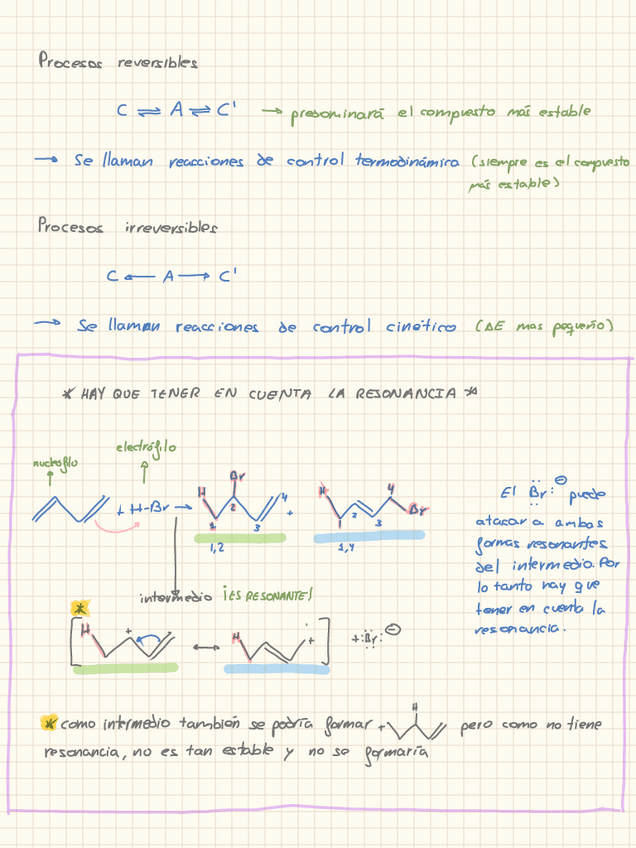 Procesos reversibles
C ⇌ A ⇌ C' → predominará el compuesto más estable
→ Se llaman reacciones de control termodinámico (siempre es el compuesto
más estable)
Procesos irreversibles
C ← A → C'
→ Se llaman reacciones de control cinético (ΔE mas pequeño)
* HAY QUE TENER EN CUENTA LA RESONANCIA *
nucleófilo
electrófilo
+ H-Br →
H Br 1 2 3 4
+
H 1 2 3 4 Br
1,2
1,4
El Br:⊖ puede
atacar a ambas
formas resonantes
del intermedio. Por
lo tanto hay que
tener en cuenta la
resonancia.
intermedio ¡ES RESONANTE!
*
[ H + ↔ H + ] + :Br: ⊖
* como intermedio también se podría formar + H pero como no tiene
resonancia, no es tan estable y no se formaría